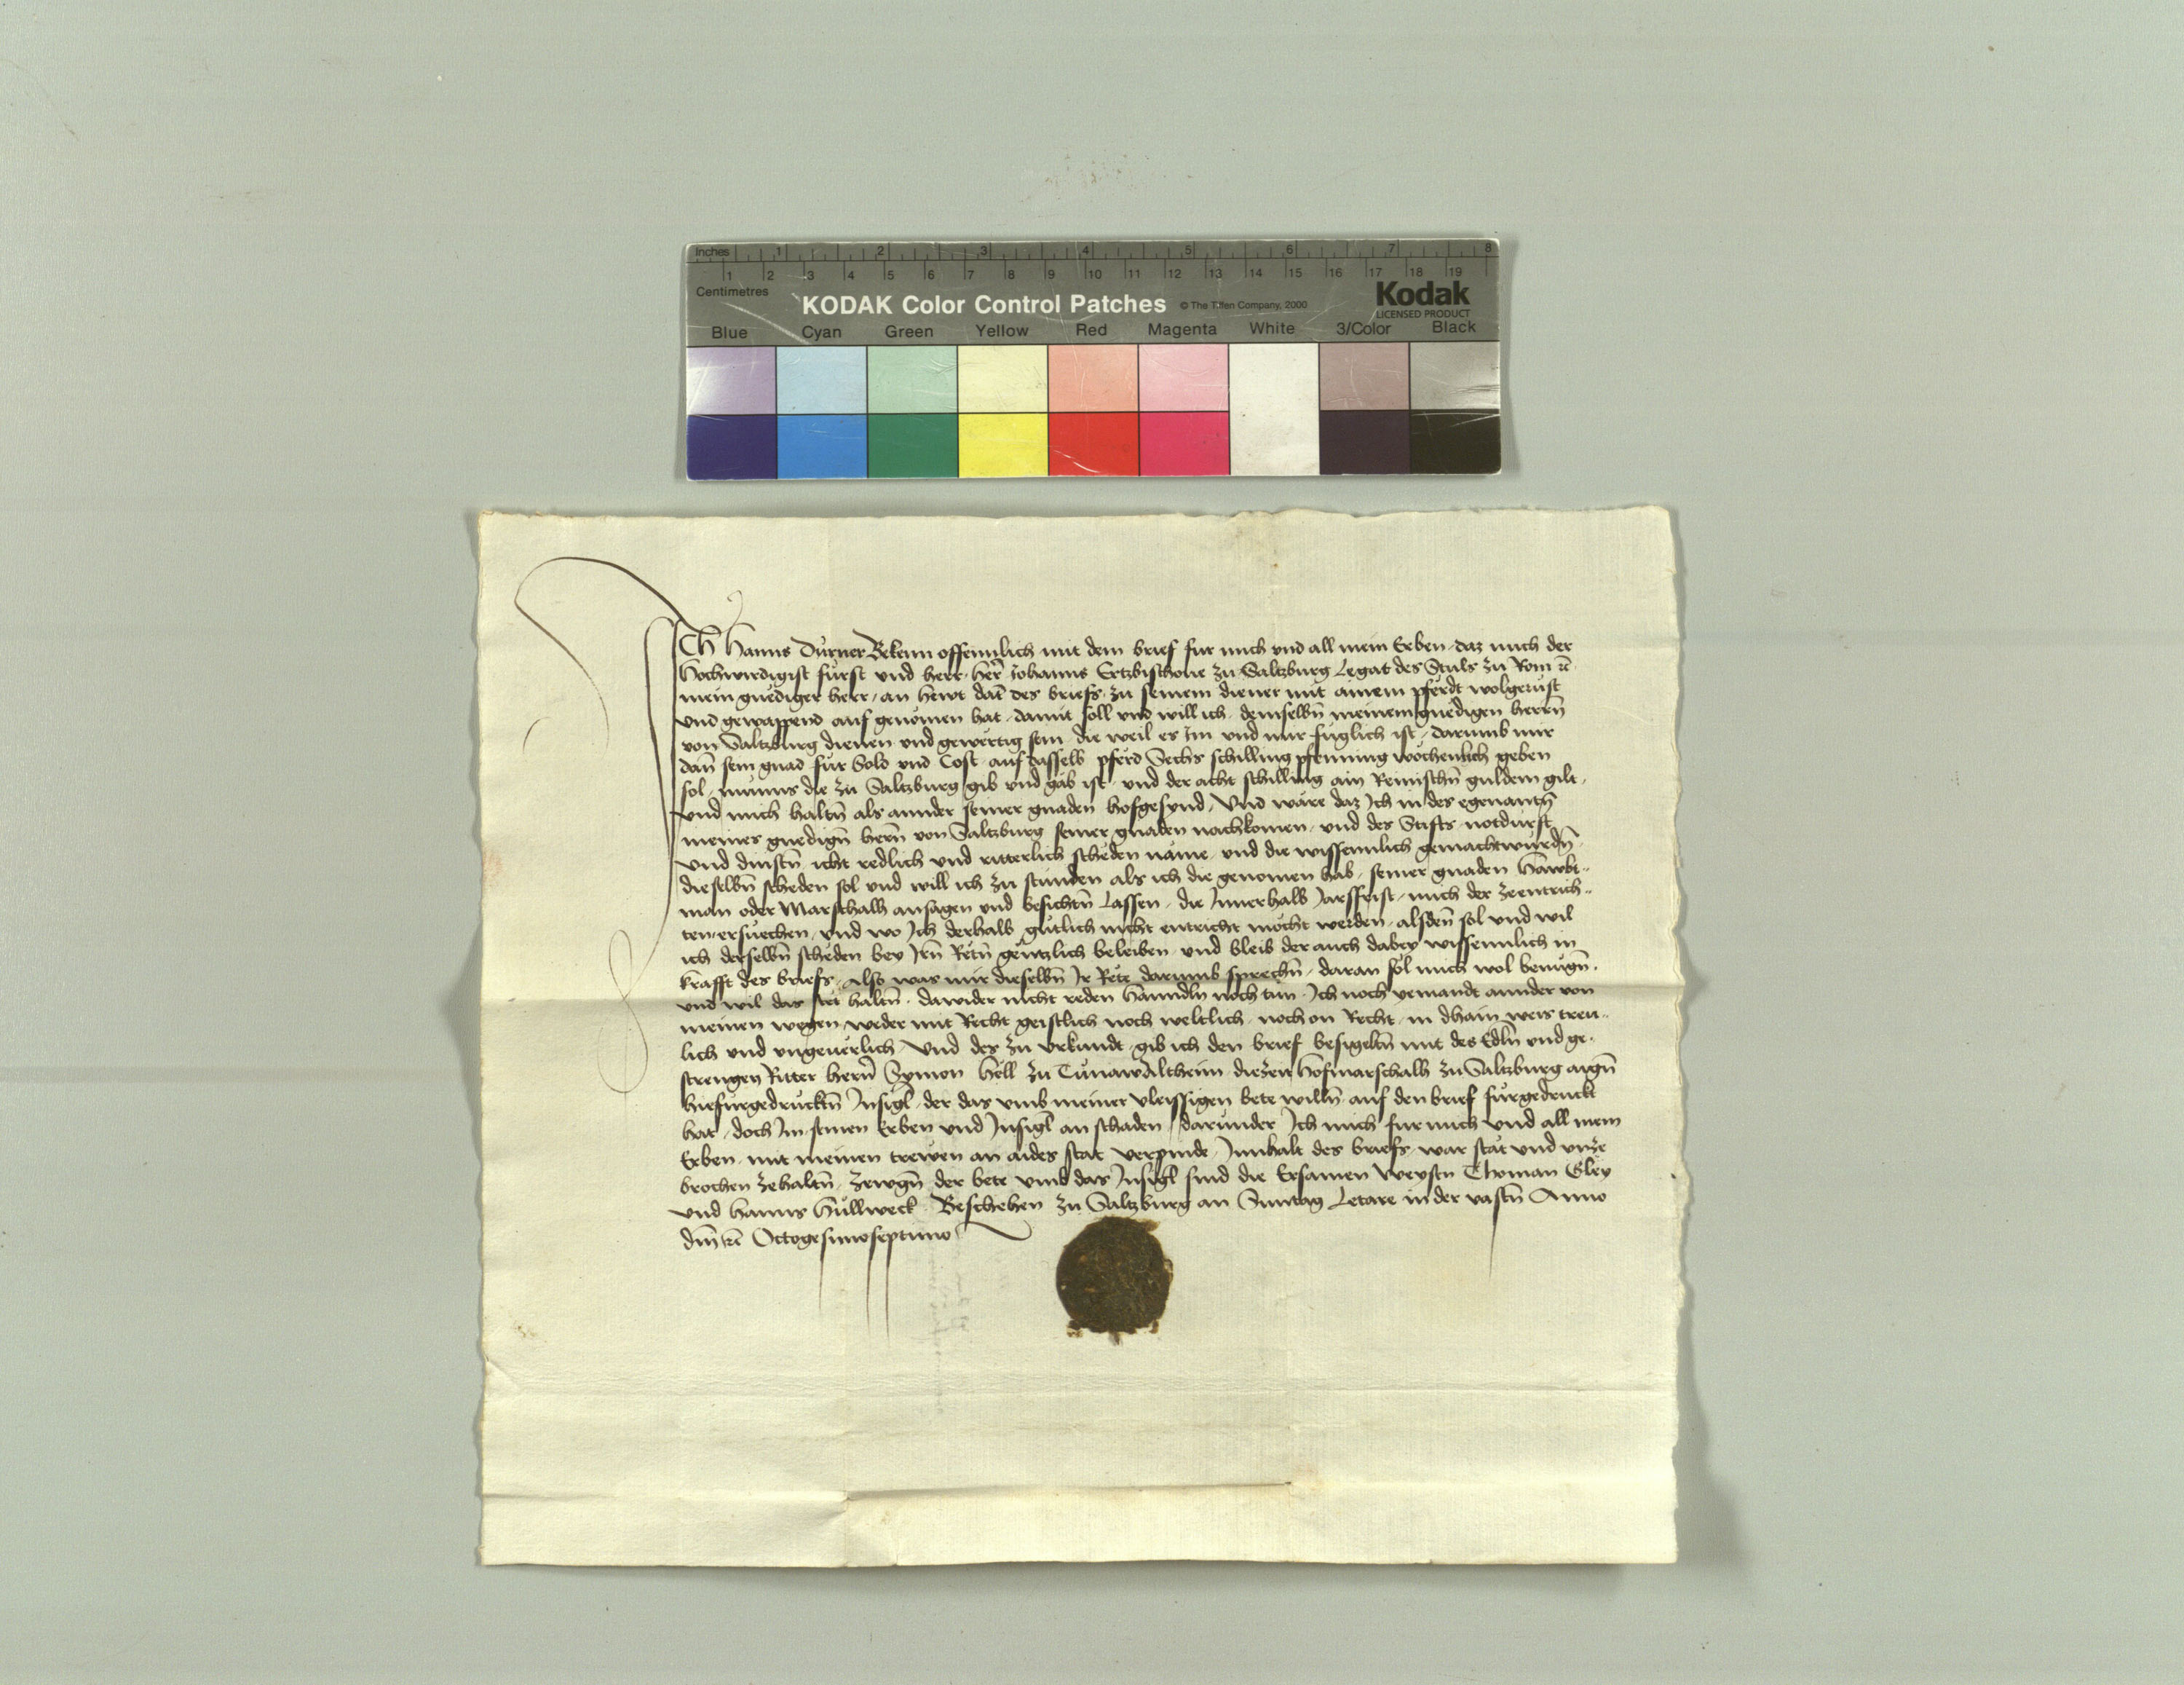 Inches 1 2 3 4 5 6 7 8
1 2 3 4 5 6 7 8 9 10 11 12 13 14 15 16 17 18 19
Centimetres
KODAK Color Control Patches © The Tiffen Company, 2000 Kodak
LICENSED PRODUCT
Blue Cyan Green Yellow Red Magenta White 3/Color Black
ICh Hanns Dürner Bekenn offennlich mit dem brief fur mich und all mein Erben, daz mich der
Hochwirdigist fürst und herr, herr Johanns Ertzbischove zu Saltzburg Legat des Stuls zu Rom ꝛc
mein gnediger herr, an hewt dat des briefs, zu seinem diener mit ainem pferdt wolgerust
und gewappend auf genomen hat, damit soll und will ich, demselbn̄ meinem gnedigen herrn̄
von Saltzburg dienen und gewertig sein, die weil es Im und mir fuglich ist, darumb mir
dan̄ sein gnad für Sold und Cost, auf dasselb pferd Sechs schilling pfenning wochenlich geben
sol, munns die zu Saltzburg gib und gäb ist, und der acht schilling ain Reinischn̄ guldein gilt,
und mich haltn̄ als annder seiner gnaden hofgesynd, Und wäre daz Ich in des egenantn̄
meines gnedign̄ hern̄ von Saltzburg seiner gnaden nachkomen, und des Stifts notdurft
und dinstn̄ icht redlich und ritterlich scheden näme, und die wissennlich gemacht wurdn̄,
dieselbn̄ scheden sol und will ich zu stunden als ich die genomen hab, seiner gnaden Hawbt-
man oder Marschalh ansagen und besichtn̄ lassen, die Innerhalb Jarsfrist, mich der zeentrich-
ten ersuechen, und wo Ich derhalb gütlich nicht entricht möcht werden, alsden̄ sol und wil
ich derselbn̄ scheden bey Irn̄ Retn̄ gentzlich beleiben, und bleib der auch dabey wissennlich in
krafft des briefs, Also was mir dieselbn̄ Ir Rete darumb sprechn̄, daran sol mich wol benügn̄,
und wil das stet haltn̄, dawider nicht reden hanndln noch tun, Ich noch yemandt annder von
meinen wegen, weder mit Recht geistlich noch weltlich, noch on Recht, in dhain weis treu-
lich und ungeuerlich, Und des zu urkundt, gib ich den brief besigeltn̄ mit des Edln̄ und ge-
strengen Ritter hern̄ Symon Hell zu Tunawaltheim, diezeit Hofmarschalh zu Saltzburg aign̄
hiefurgedrucktn̄ Insigl, der das umb meiner vleissigen bete willn̄ auf den brief fürgedruckt
hat, doch Im seinen Erben und Insigl an schaden, darunder Ich mich fur mich und all mein
Erben, mit meinen trewen an aides stat verpinde, Innhalt des briefs, war stät und unze
brochen zehaltn̄, Zewgn̄ der bete umb das Insigl sind die Ersamen Weystn Thoman Gley
und Hanns Hüllweck, Beschehen zu Saltzburg an Suntag Letare in der vastn̄ Anno
dm̄ ꝛc Octogesimoseptimo